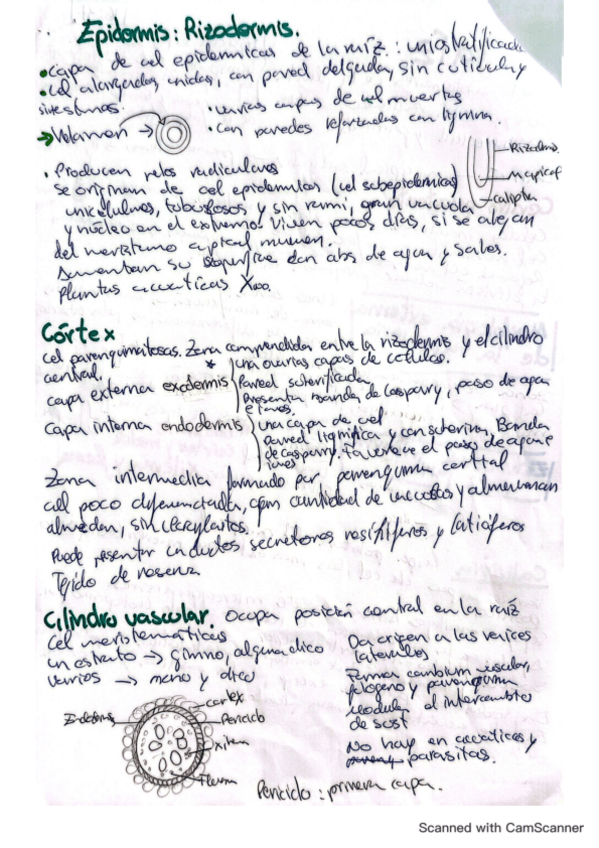 Epidermis: Rizodermis.
• capa de cel epidermicas de la raíz: uniestratificada
• cel alargadas, unidas, con pared delgada, sin cutícula y
sin estomas.
• varias capas de cel muertas
→ Velamen →
• con paredes reforzadas con lignina.
Rizodermis
caliptra
• Producen pelos radiculares
se originan de cel epidermicas (cel subepidermicas)
unicelulares, tubulosos y sin ramif, gran vacuola
y núcleo en el extremo. Viven pocos días, si se alejan
del meristemo apical mueren.
Aumentan su superficie con abs de agua y sales.
Plantas acuáticas
Córtex
cel parenquimatosas. Zona comprendida entre la rizodermis y el cilindro
central.
una o varias capas de células.
capa externa exodermis
Pared suberificada
Presenta banda de Caspary, paso de agua
e iones.
Capa interna endodermis
una capa de cel
Pared lignificada y con suberina, Banda
de caspary. Favorece el paso de agua e
iones
Zona intermedia formado por parenquima cortical
cel poco diferenciada, gran cantidad de vacuolas y almacenan
almidón, sin cloroplastos.
Puede presentar conductos secretores resiníferos y latíciferos
Tejido de reserva
Cilindro vascular. Ocupa posición central en la raíz
Cel meristemáticas
un estrato → gimno, alguna dico
varios → mono y dico
Da origen a las raices
laterales
Forma cambium vascular,
felógeno y parenquima
Modulan el intercambio
de sust
No hay en acuáticas y
parásitas.
cortex
Endodermis
Periciclo
Xilema
Floema
Periciclo: primera capa.
Scanned with CamScanner